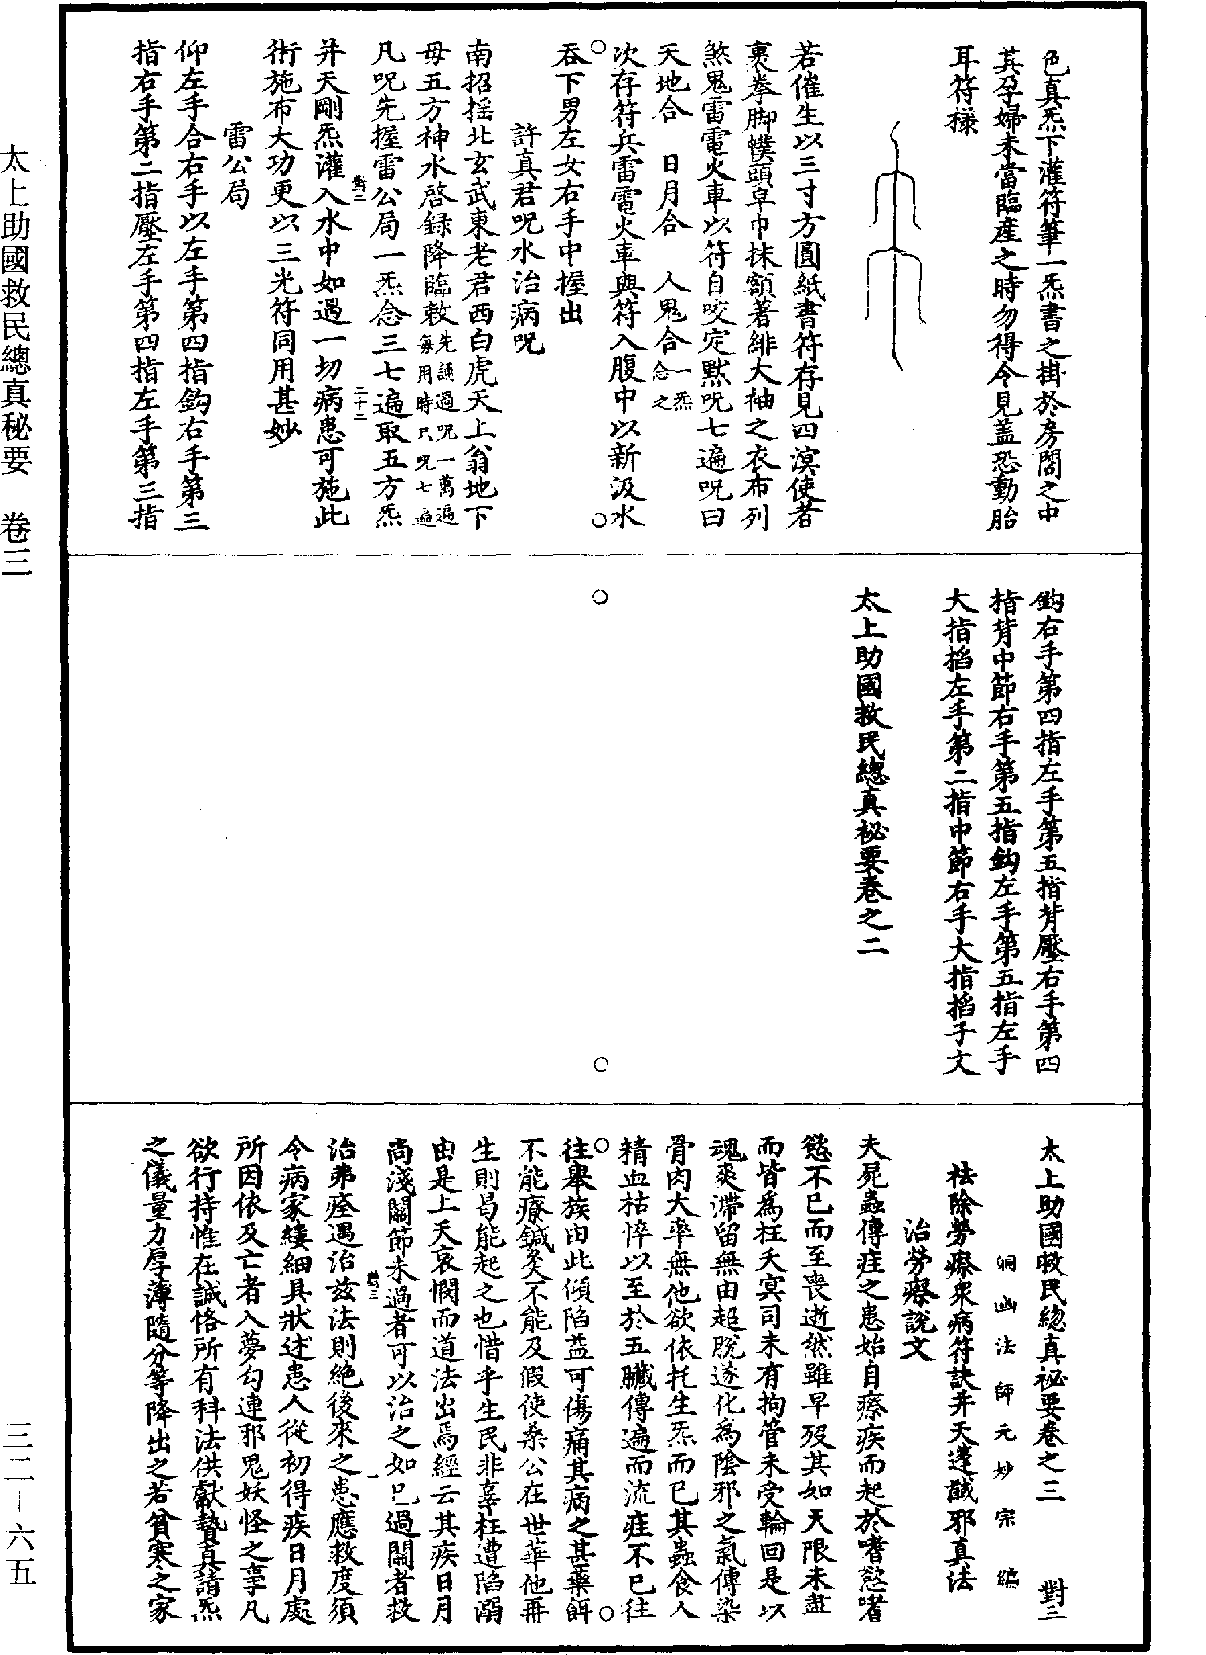 太上助國救民總真秘要　卷三
三二—六五
色真炁下灌符筆一炁書之掛於房閤之中
其孕婦未當臨産之時勿得令見蓋恐動胎
耳符樣
若催生以三寸方圓紙書符存見四溟使者
裹拳脚幞頭皁巾抹額著緋大袖之衣布列
煞鬼雷電火車以符自咬定黙呪七遍呪曰
天地合　日月合　人鬼合一炁念之
次存符兵雷電火車與符入腹中以新汲水
吞下男左女右手中握出
許真君呪水治病呪
南招摇北玄武東老君西白虎天上翁地下
母五方神水啓録降臨敕先誦過呪一萬遍每用時只呪七遍
凡呪先握雷公局一炁念三七遍取五方炁
對二　二十二
并天剛炁灌入水中如遇一切病患可施此
術施布大功更以三光符同用甚妙
雷公局
仰左手合右手以左手第四指鈎右手第三
指右手第二指壓左手第四指左手第三指
鈎右手第四指左手第五指背壓右手第四
指背中節右手第五指鈎左手第五指左手
大指掐左手第二指中節右手大指掐子文
太上助國救民總真祕要卷之二
太上助國救民總真祕要卷之三　對三
洞幽法師元妙宗編
祛除勞瘵衆病符訣并天蓬馘邪真法
治勞瘵説文
夫屍蟲傳疰之患始自瘵疾而起於嗜慾嗜
慾不已而至喪逝然雖早殁其如天限未盡
而皆為枉夭冥司未有拘管未受輪回是以
魂爽滯留無由超脱遂化為陰邪之氣傳染
骨肉大率無他欲依托生炁而已其蟲食人
精血枯悴以至於五臟傳遍而流疰不已往
往舉族由此傾陷益可傷痛其病之甚藥餌
不能療鍼灸不能及假使桑公在世華他再
生則曷能起之也惜乎生民非辜枉遭陷溺
由是上天哀憫而道法出焉經云其疾日月
尚淺關節未過者可以治之如已過關者救
對三　一
治弗痊遇治兹法則絶後來之患應救度須
令病家縷細具狀述患人從初得疾日月處
所因依及亡者入夢勾連邪鬼妖怪之事凡
欲行持惟在誠恪所有科法供獻贄真請炁
之儀量力厚薄隨分等降出之若貧寒之家